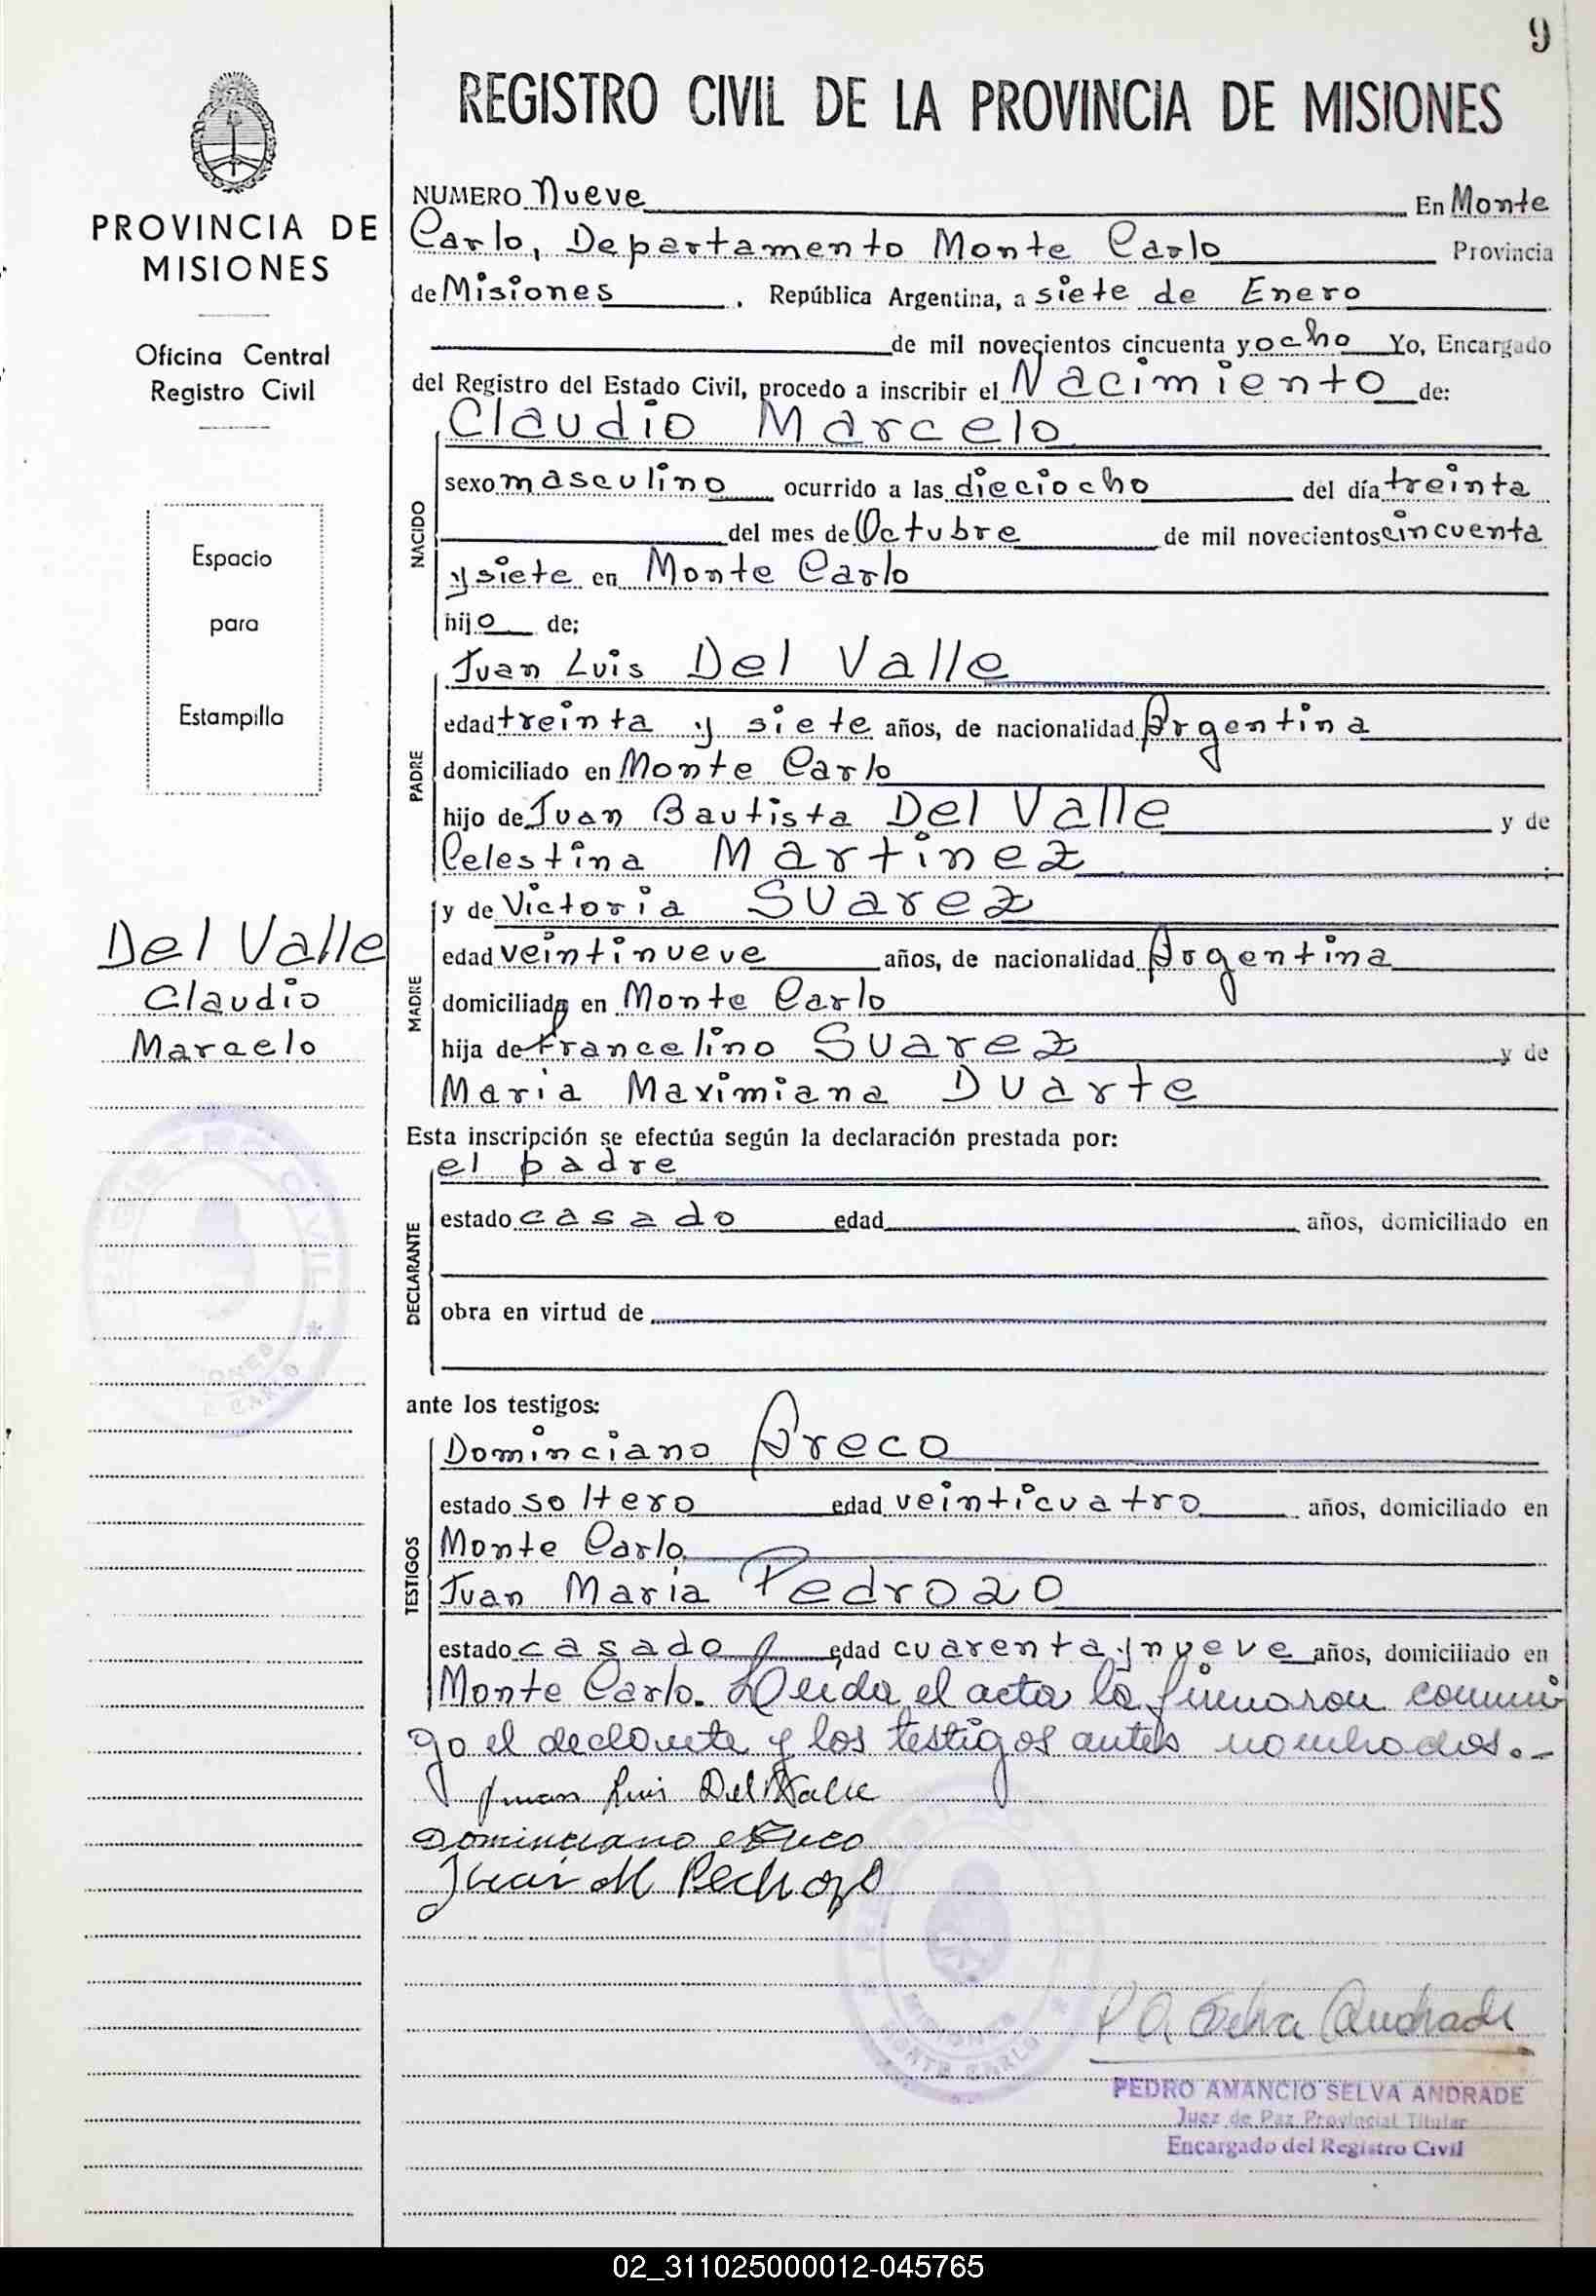 9
REGISTRO CIVIL DE LA PROVINCIA DE MISIONES
PROVINCIA DE
MISIONES
Oficina Central
Registro Civil
Espacio
para
Estampilla
Del Valle
Claudio
Marcelo
NUMERO Nueve En Monte
Carlo, Departamento Monte Carlo Provincia
de Misiones, República Argentina, a siete de Enero
de mil novecientos cincuenta y ocho Yo, Encargado
del Registro del Estado Civil, procedo a inscribir el Nacimiento de:
NACIDO
Claudio Marcelo
sexo masculino ocurrido a las dieciocho del día treinta
del mes de Octubre de mil novecientos cincuenta
y siete en Monte Carlo
hijo de;
PADRE
Juan Luis Del Valle
edad treinta y siete años, de nacionalidad Argentina
domiciliado en Monte Carlo
hijo de Juan Bautista Del Valle y de
Celestina Martinez
MADRE
y de Victoria Suarez
edad veintinueve años, de nacionalidad Argentina
domiciliada en Monte Carlo
hija de Francelino Suarez y de
Maria Maximiana Duarte
Esta inscripción se efectúa según la declaración prestada por:
DECLARANTE
el padre
estado casado edad años, domiciliado en
obra en virtud de
ante los testigos:
TESTIGOS
Dominciano Areco
estado soltero edad veinticuatro años, domiciliado en
Monte Carlo
Juan Maria Pedrozo
estado casado edad cuarenta y nueve años, domiciliado en
Monte Carlo. Leida el acta la firmaron conmi
go el declarante y los testigos antes nombrados.-
Juan Luis Del Valle
Dominciano Areco
Juan M Pedrozo
MISIONES
MONTE CARLO
P A Selva Andrade
PEDRO AMANCIO SELVA ANDRADE
Juez de Paz Provincial Titular
Encargado del Registro Civil
02_311025000012-045765